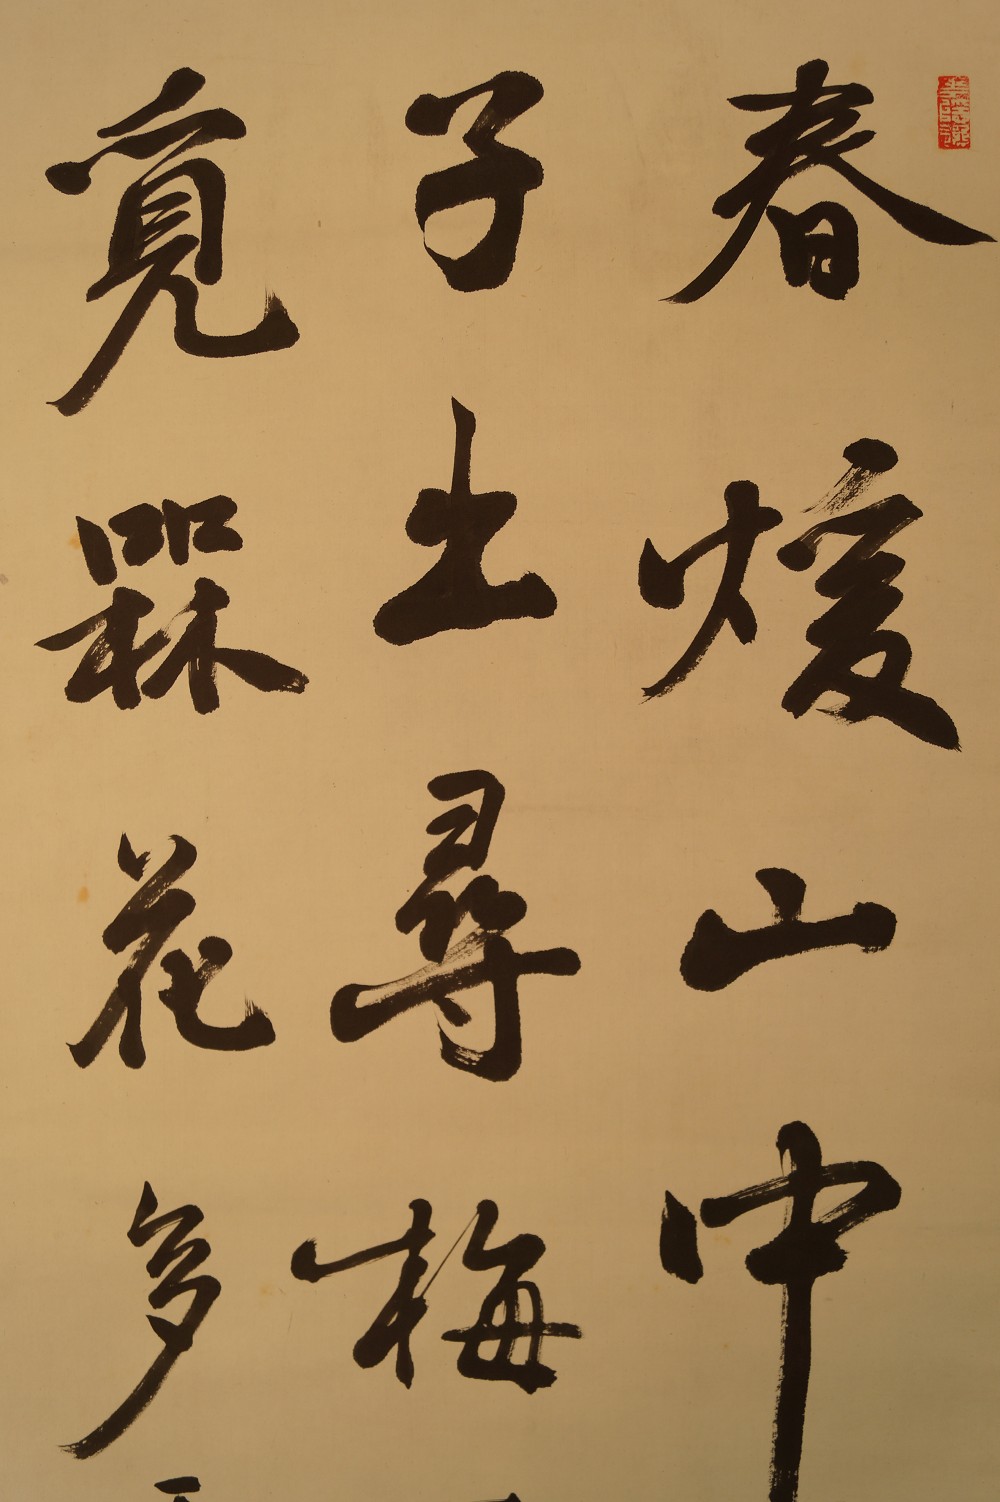 春煖山中
子出尋梅
覓槑花多